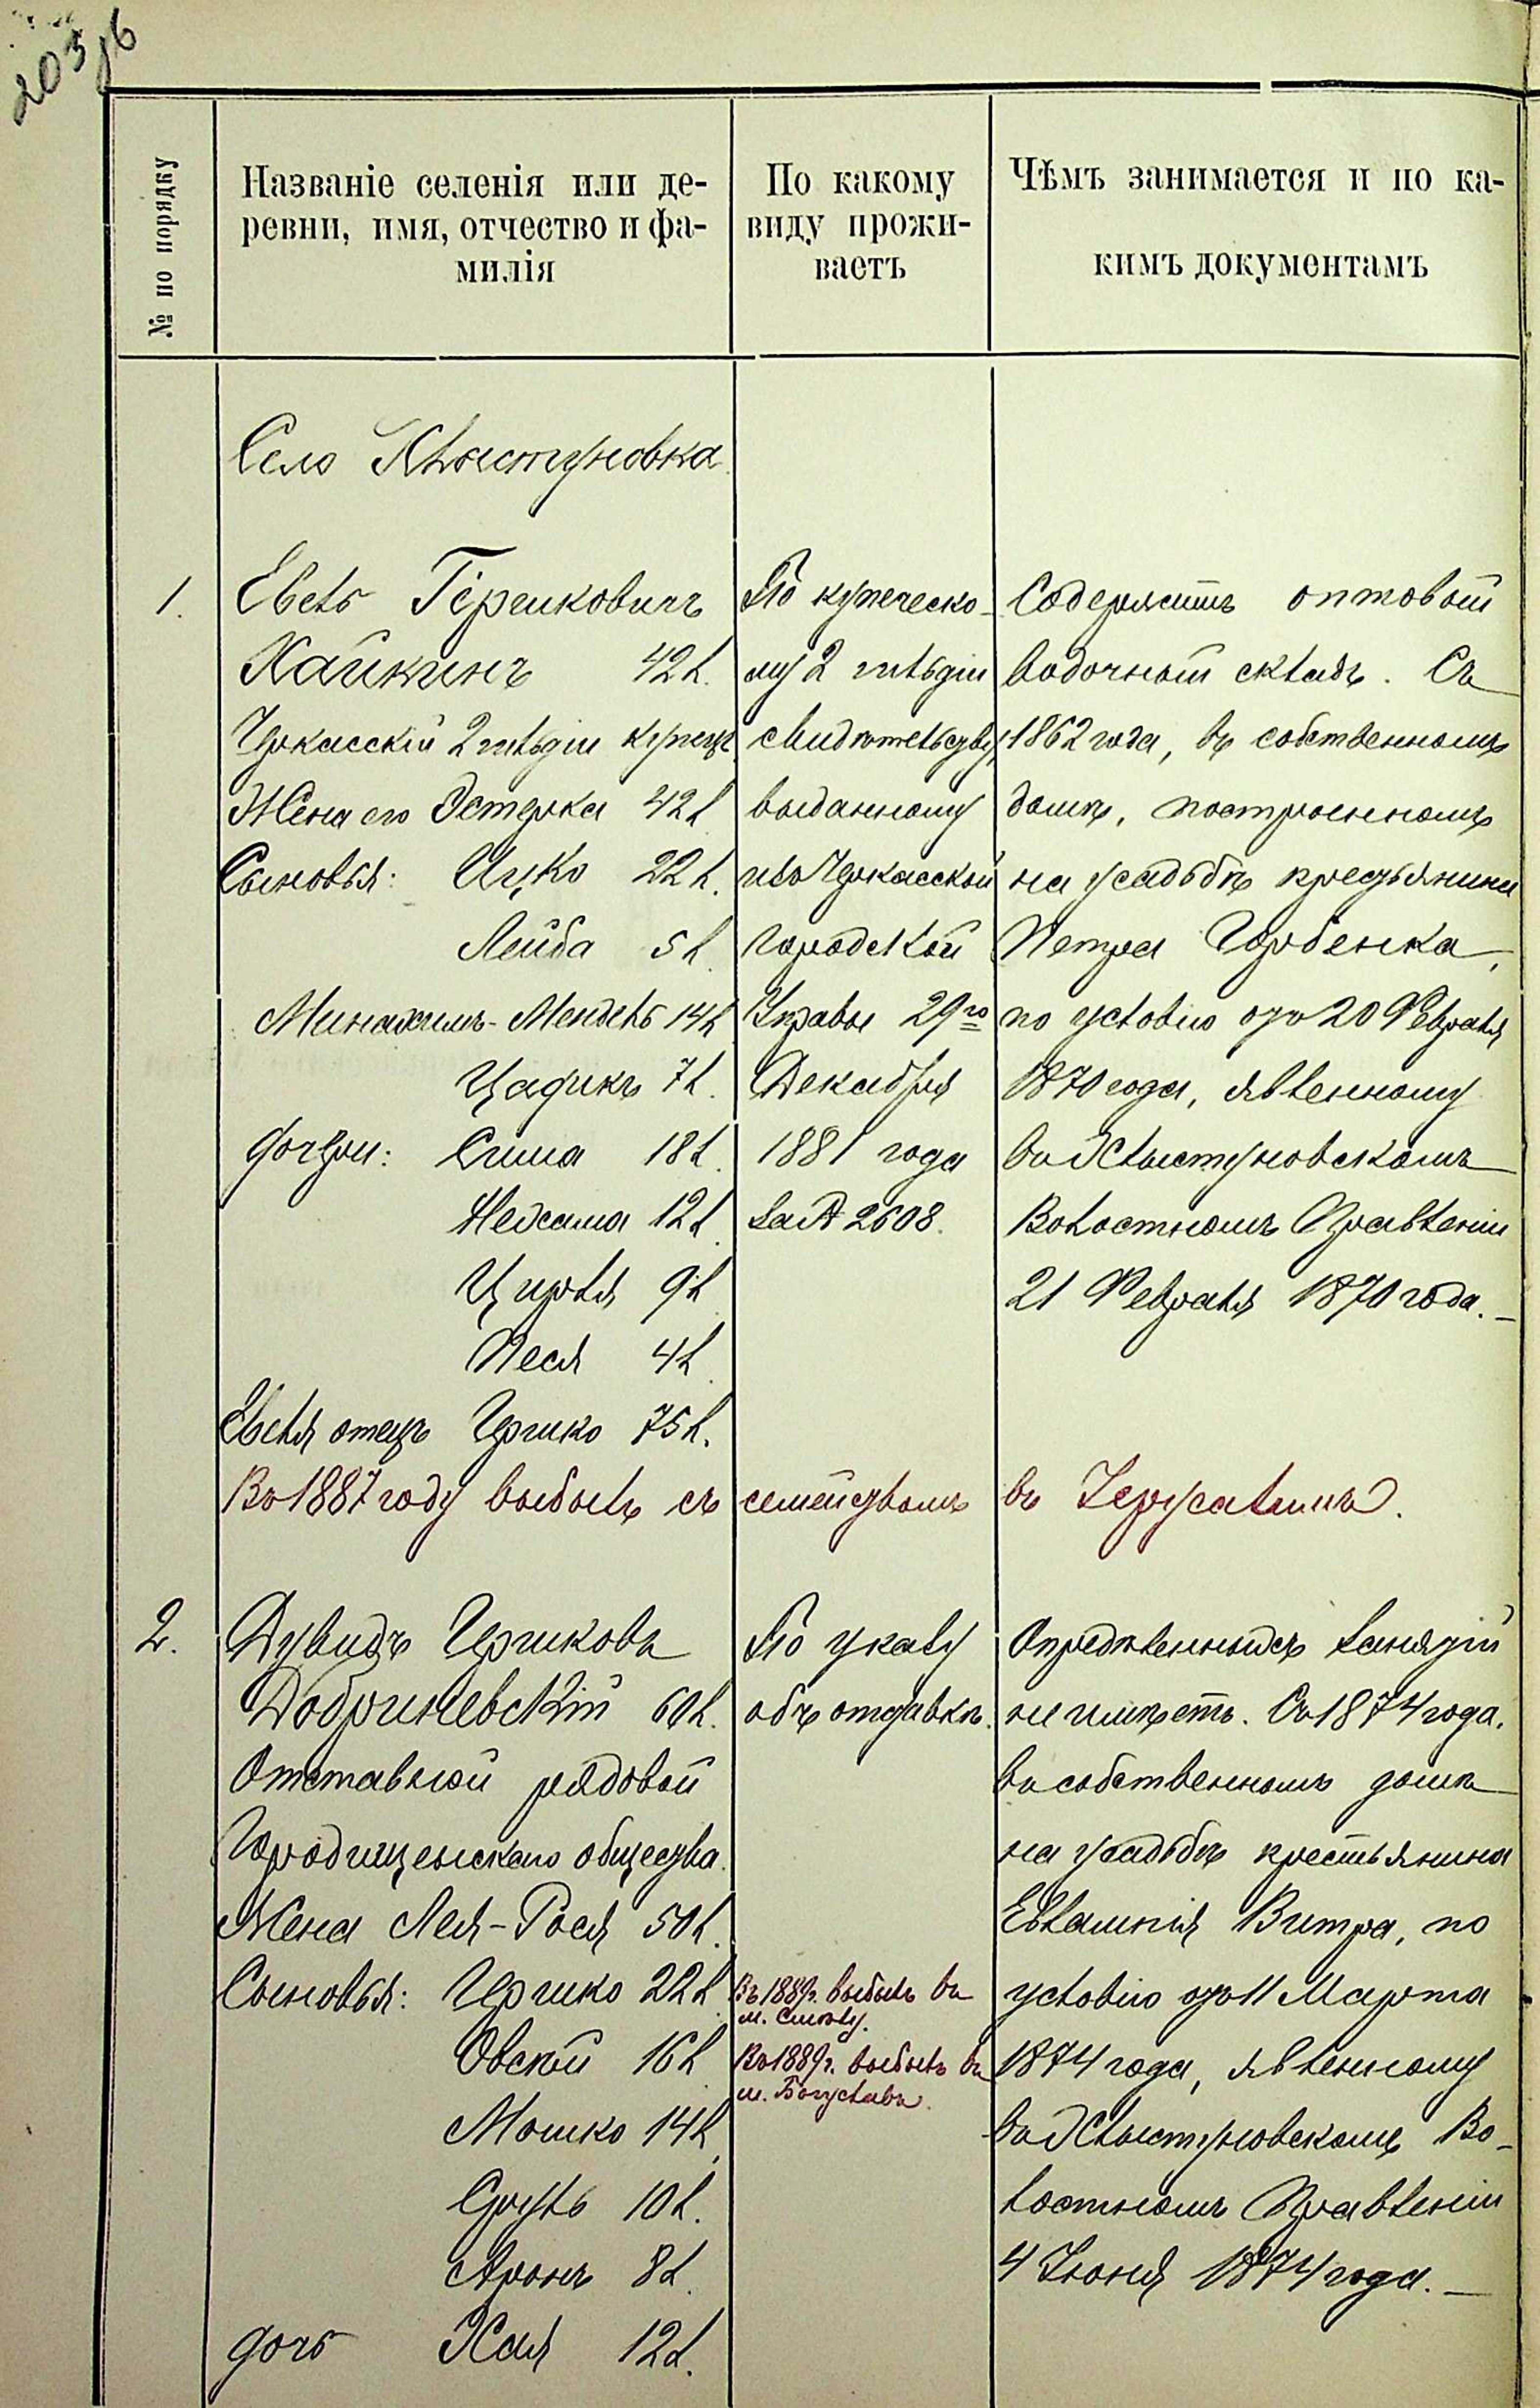 203/б
№ по порядку
Названіе селенія или де-
ревни, имя, отчество и фа-
милія
По какому
виду прожи-
ваетъ
Чѣмъ занимается и по ка-
кимъ документамъ
Село Хлыстуновка
1.
Евель Гершковичъ
Хайкинъ 42 л.
Черкасскій 2 гильдіи купецъ
Жена его Эстерка 42 л.
Сыновья: Ицко 22 л.
Лейба 5 л.
Минахимъ-Мендель 14 л.
Цадикъ 7 л.
Дочери: Сима 18 л.
Нехама 12 л.
Цирля 9 л.
Песя 4 л.
Евеля отецъ Гершко 75 л.
По купеческо-
му 2 гильдіи
свидѣтельству,
выданному
изъ Черкасской
городской
Управы 29го
Декабря
1881 года
за № 2608.
Содержитъ оптовый
водочный складъ. Съ
1862 года, въ собственномъ
домѣ, построенномъ
на усадьбѣ крестьянина
Петра Горбенка,
по условію отъ 20 Февраля
1870 года, явленному
въ Хлыстуновскомъ
Волостномъ Правленіи
21 Февраля 1870 года.-
Въ 1887 году выбылъ съ семействомъ въ Іерусалимъ.
2.
Дувидъ Гершковъ
Добриневскій 60 л.
Отставной рядовой
Городищенскаго общества.
Жена Лея-Рося 50 л.
Сыновья: Гершко 22 л.
Овсей 16 л.
Мошко 14 л.
Сруль 10 л.
Аронъ 8 л.
дочь Хая 12 л.
По указу
объ отставкѣ.
Въ 1889 г. выбылъ въ
м. Смѣлу.
Въ 1889 г. выбылъ въ
м. Богуславъ.
Опредѣленныхъ занятій
не имѣетъ. Съ 1874 года.
въ собственномъ домѣ
на усадьбѣ крестьянина
Евлампія Витра, по
условію отъ 11 Марта
1874 года, явленному
въ Хлыстуновскомъ Во-
лостномъ Правленіи
4 Іюня 1874 года.-